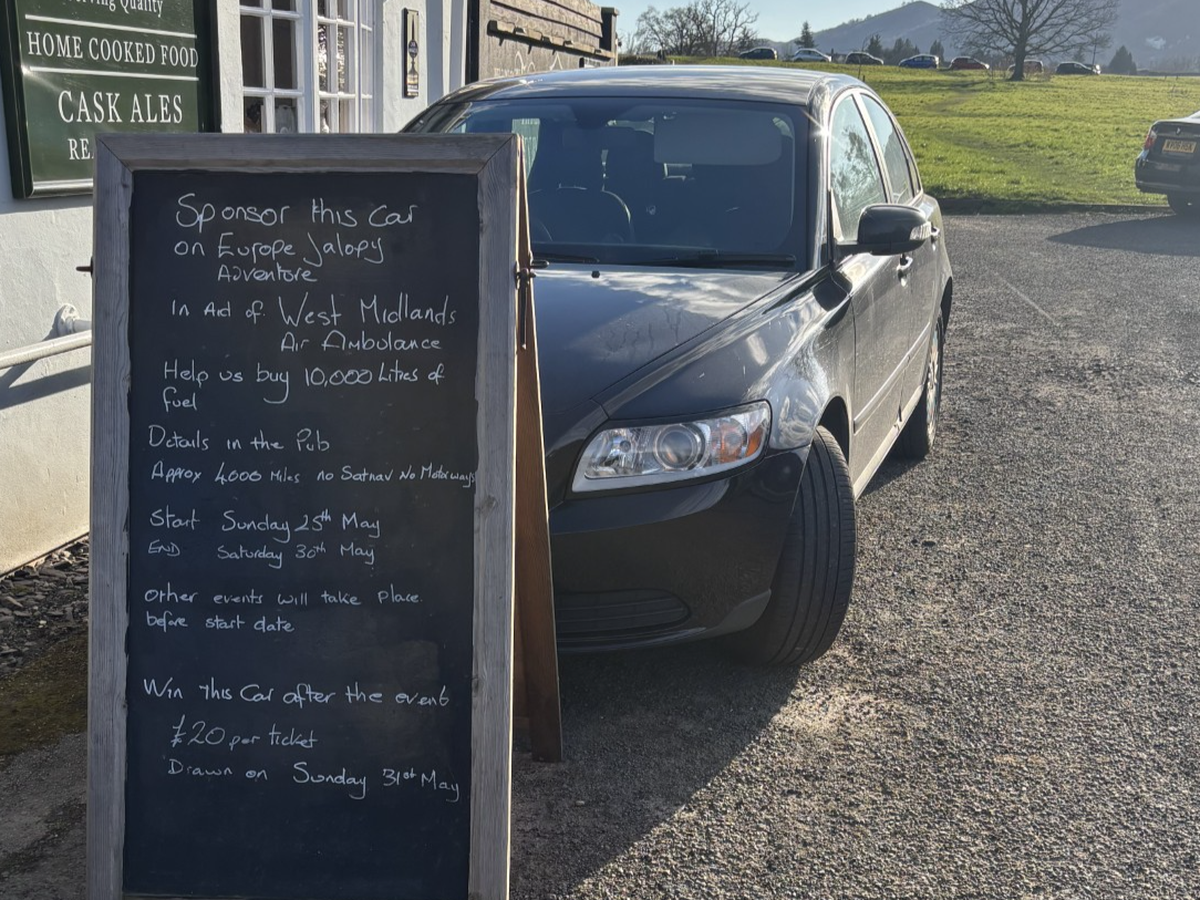 Serving Quality
HOME COOKED FOOD
CASK ALES
RE
Sponsor this Car
on Europe Jalopy
Adventure
In Aid of: West Midlands
Air Ambulance
Help us buy 10,000 Litres of
fuel
Details in the Pub
Approx 4000 Miles no Satnav No Motorways
Start Sunday 25th May
END Saturday 30th May
other events will take place.
before start date
Win this Car after the event
£20 per ticket
Drawn on Sunday 31st May